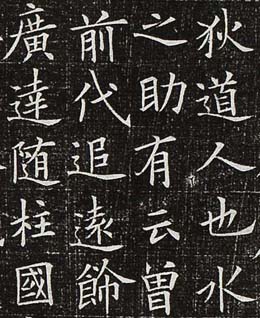 狄道人也水
之助有云曽
前代追遠飾
廣達随柱國